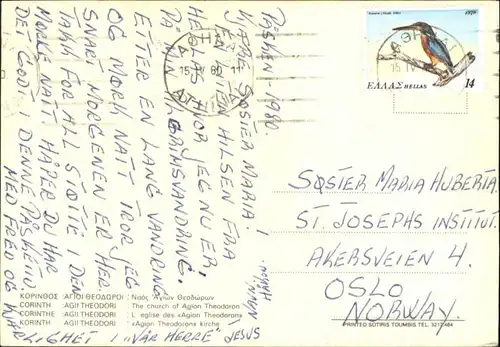 PÅSKEN-1980
KJÆRE SØSTER MARIA!
EN HILSEN FRA
HELLAS HVOR JEG NU ER,
PÅ MIN PILGRIMSVANDRING.
ETTER EN LANG VANDRING
OG MØRK NATT TROR JEG
SNART MORGENEN ER HER.
TAKK FOR ALL STØTTE I DEN
MØRKE NATT HÅPER DU HAR
DET GODT I DENNE PÅSKETID
MED FRED OG
KJÆRLIGHET I "VÅR HERRE" JESUS
15 80 11
ΑΘΗΝΑΙ
15 IV
1979
ΕΛΛΑΣ HELLAS 14
SØSTER MARIA HUBERTA
ST. JOSEPHS INSTITUT.
AKERSVEIEN 4.
OSLO
NORWAY.
ΚΟΡΙΝΘΟΣ (ΑΓΙΟΙ ΘΕΟΔΩΡΟΙ) : Ναός Ἁγίων Θεοδώρων
CORINTH AGII THEODORI : The church of Agion Theodoron
CORINTHE AGII THEODORI : L' eglise des «Agion Theodoron»
CORINTH AGII THEODORI : «Agion Theodoron» Kirche
PRINTED SOTIRIS TOUMBIS TEL. 3217484